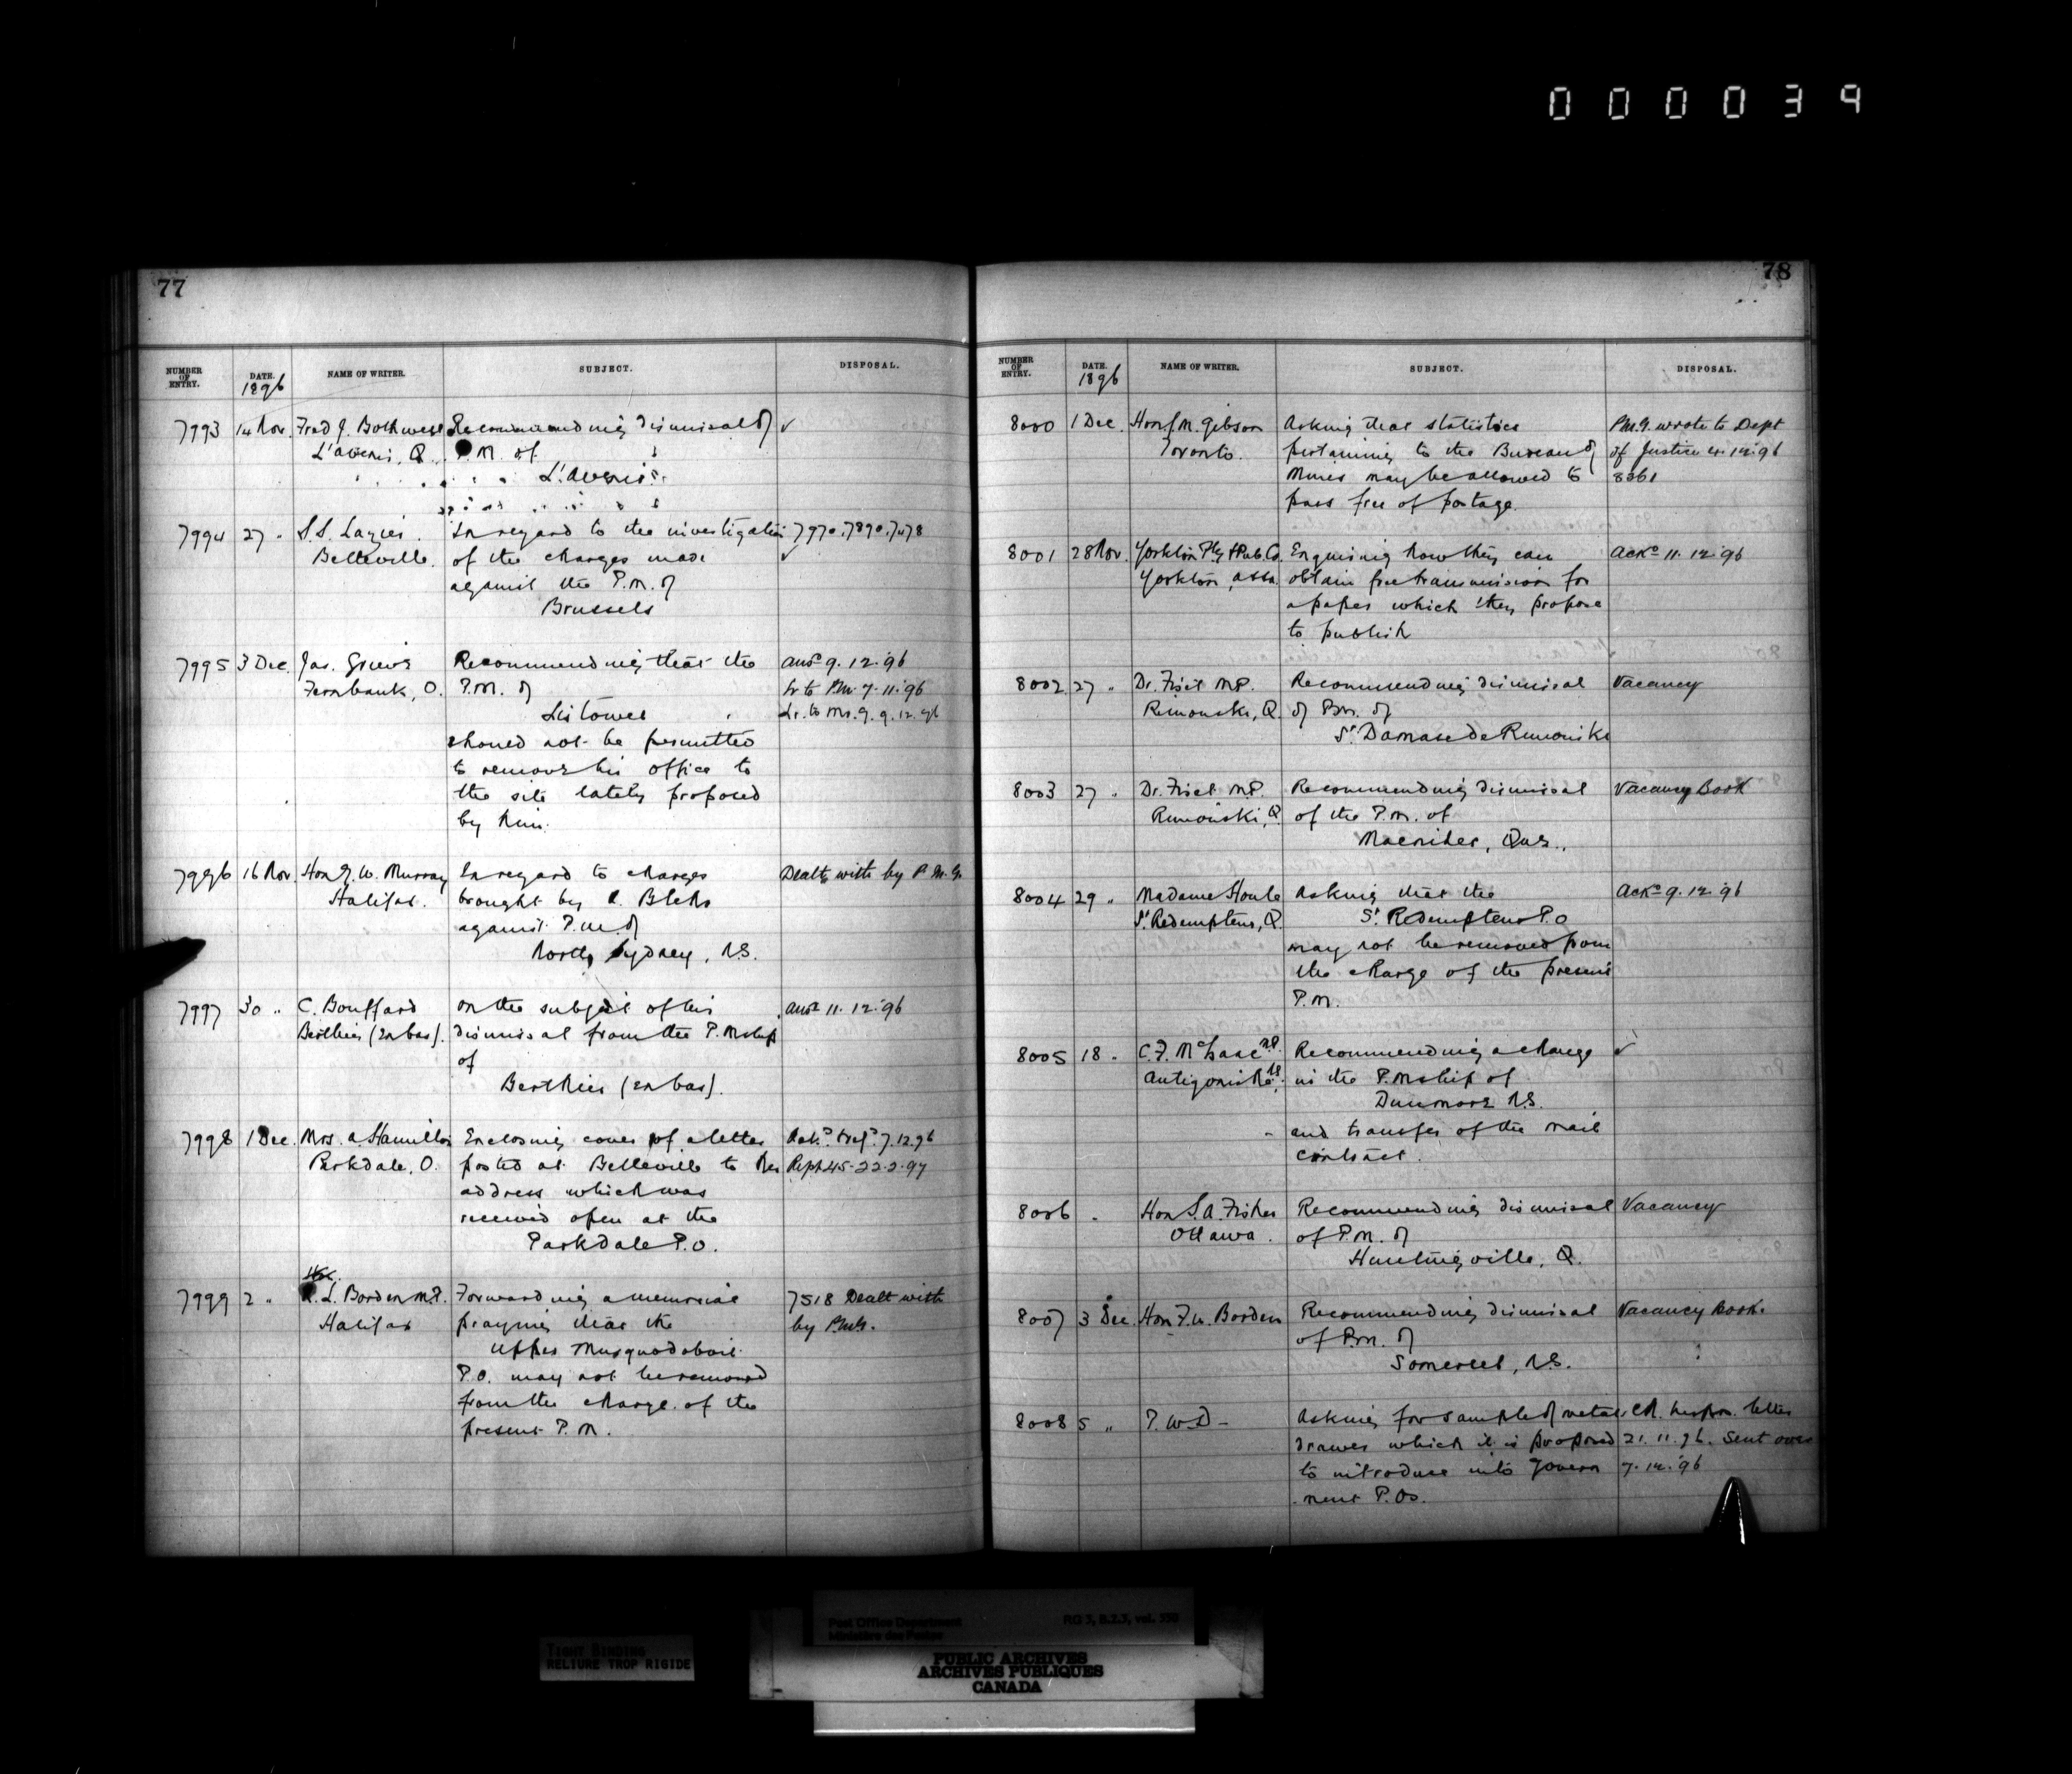 000039
77
NUMBER OF ENTRY. DATE. 1896 NAME OF WRITER. SUBJECT. DISPOSAL.
7993 14 Nov. Fred J. Bothwell Recommending dismissal of ✓
L'avenir, Q. P.M. of
L'avenir.
7994 27 " S.S. Lazier. In regard to the investigation 7970. 7890. 7478
Belleville. of the charges made ✓
against the P.M. of
Brussels
7995 3 Dec. Jas. Recommending that the ansd 9.12.96
Fernbank, O. P.M. of Lr to Pm. 7.11.96
Listowel Lr. to 9.12.96
should not be permitted
to remove his office to
the site lately proposed
by him.
7996 16 Nov. Hon G. W. Murray In regard to charges Dealt with by P.M.G.
Halifax. brought by
against P.M. of
North Sydney, N.S.
7997 30 " C. Bouffard on the subject of his ansd 11.12.96
Berthier (en bas). dismissal from the P.Mship
of
Berthier (en bas).
7998 1 Dec. Mrs. A. Hamilton Enclosing cover of a letter 7.12.96
Parkdale, O. posted at Belleville to her 22.2.97
address which was
received open at the
Parkdale P.O.
7999 2 " R. L. Borden M.P. Forwarding a memorial 7518 Dealt with
Halifax praying that the by PMG.
Upper Musquodoboit
P.O. may not be removed
from the charge of the
present P.M.
78
NUMBER OF ENTRY. DATE. 1896 NAME OF WRITER. SUBJECT. DISPOSAL.
8000 1 Dec. Hon J. M. Gibson Asking that statistics P.M.G. wrote to Dept
Toronto. pertaining to the Bureau of of Justice 12.96
Mines may be allowed to 8361
pass free of postage.
8001 28 Nov. Yorkton Ptg & Pub. Co. Enquiring how they can Ackd 11.12.96
Yorkton, Assa. obtain free transmission for
a paper which they propose
to publish
8002 27 " Dr. Fiset M.P. Recommending dismissal Vacancy
Rimouski, Q. of P.M. of
St. Damase de Rimouski
8003 27 " Dr. Fiset M.P. Recommending dismissal Vacancy Book
Rimouski, Q of the P.M. of
Macnider, Que.
8004 29 " Madame Houle Asking that the Ackd 9.12.96
St. Redempteur, Q. St. Redempteur P.O
may not be removed from
the charge of the present
P.M.
8005 18 " C. F. McIsaac M.P. Recommending a change ✓
Antigonish N.S. in the P.Mship of
Dunmore N.S.
and transfer of the mail
contract.
8006 " Hon S. A. Fisher Recommending dismissal Vacancy
Ottawa. of P.M. of
Huntingville, Q.
8007 3 Dec. Hon F. W. Borden Recommending dismissal Vacancy Book.
of P.M. of
Somerset, N.S.
8008 5 " P. W. D - Asking for sample of metal letter
drawer which it is proposed 21.11.96. Sent over
to introduce into Govern 7.12.96
ment P.Os.
TIGHT BINDING
RELIURE TROP RIGIDE
Post Office Department RG 3, B.2.3, vol. 550
Ministère des Postes
PUBLIC ARCHIVES
ARCHIVES PUBLIQUES
CANADA